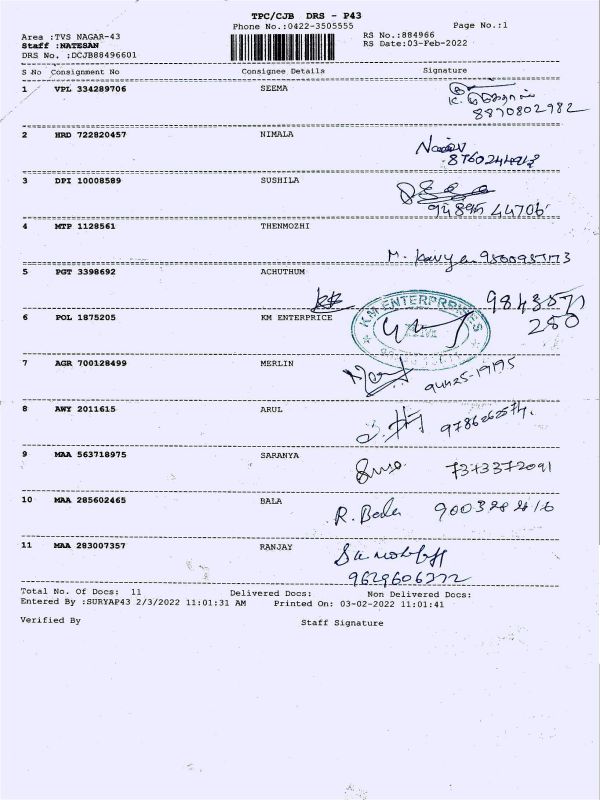 TPC/CJB DRS - P43
Phone No.:0422-3505555
Page No.:1
Area :TVS NAGAR-43
Staff :NATESAN
DRS No. :DCJB88496601
RS No.:884966
RS Date:03-Feb-2022
S No Consignment No Consignee Details Signature
1 VPL 334289706 SEEMA
8870802982
2 HRD 722820457 NIMALA
3 DPI 10008589 SUSHILA
94895 44706
4 MTP 1128561 THENMOZHI
M. Kavya
5 PGT 3398692 ACHUTHUM
6 POL 1875205 KM ENTERPRICE
KM ENTERPRISES
9843571
280
7 AGR 700128499 MERLIN
94425-19195
8 AWY 2011615 ARUL
9 MAA 563718975 SARANYA
7373372091
10 MAA 285602465 BALA
R. Bala
11 MAA 283007357 RANJAY
9629606272
Total No. Of Docs: 11 Delivered Docs: Non Delivered Docs:
Entered By :SURYAP43 2/3/2022 11:01:31 AM Printed On: 03-02-2022 11:01:41
Verified By Staff Signature